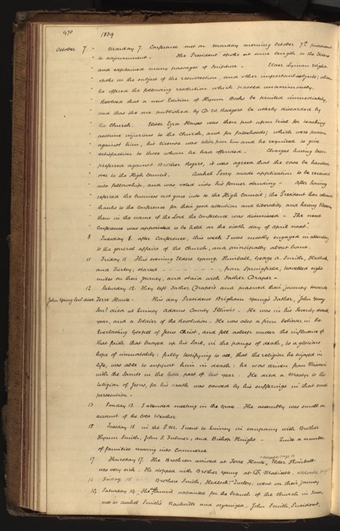 1839
October 7. Monday 7. Conference met on Monday morning October 7th pursuant
to adjournment. The President spoke at some length to the Elders
and explained many passages of Scripture. Elder Lyman Wight
spoke on the subject of the resurrection, and other important subjects; when
he offered the following resolution which passed unanimously.
Resolved that a new Edition of Hymn Books be printed immediately,
and that the one published by D. W. Rogers be utterly discarded by
the Church. Elder Ezra Hayes was then put upon trial for teaching
doctrine injurious to the Church, and for falsehoods; which were proven
against him, his license was taken from him and he required to give
satisfaction to those whom he had offended. Charges having been
preferred against Brother Rogers, it was agreed that the case be handed
over to the High Council. Asahel Perry made application to be received
into fellowship, and was voted into his former standing. After having
referred the business not gone into to the High Council; the President then returned
thanks to the Conference for their good attention and liberality and having blessed
them in the name of the Lord the Conference was dismissed. The next
Conference was appointed to be held on the sixth day of April next.
8 Tuesday 8. after Conference, this week I was mostly engaged in attending
to the general affairs of the Church, and principally about home.
11 Friday 11 This evening Elders Young, Kimball, George A. Smith, Hedlock,
and Turley, started from Springfield, travelled eight
miles on their journey, and staid with Father Draper.
12 Saturday 12. They left Father Draper's and pursued their journey towards
Terre Haute. This day President Brigham Young's Father, John Young
Senr died at Quincy Adams County Illinois. He was in his seventy sixth
year, and a soldier of the Revolution. He was also a firm believer in the
Everlasting Gospel of Jesus Christ, and fell asleep under the influence of
that faith that buoyed up his soul, in the pangs of death, to a glorious
hope of immortality; fully testifying to all, that the religion he enjoyed in
life, was able to support him in death, he was driven from Missouri
with the Saints in the latter part of last year. He died a Martyr to the
religion of Jesus, for his death was caused by his sufferings in that cruel
persecution.
13 Sunday 13. I attended meeting in the Grove. The assembly was small on
account of the cold weather.
15 Tuesday 15 in the P.M. I went to Quincy in company with Brother
Hyrum Smith, John S. Fullmer, and Bishop Knight. Quite a number
of families moving into Commerce
17 Thursday 17. The Brethren arrived at Terre Haute, Elder Kimball
was very sick. He stopped with Brother Young at Dr. Modisett's
18 Friday 18 Brothers Smith, Hedlock, Turley, went on their journey
19 Saturday 19. The Council